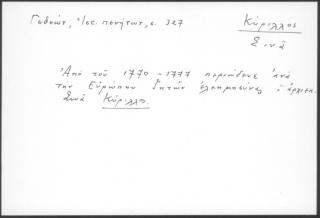 Γεδεών, Ἀ/σε. πονήτων, σ. 327
Κύριλλος
Σινᾶ
Ἀπό τοῦ 1770-1777 περιώδευε ἀνά
τήν Εὐρώπην ζητῶν ἐλεημοσύνας ὁ ἀρχιεπ.
Σινᾶ Κύριλλος